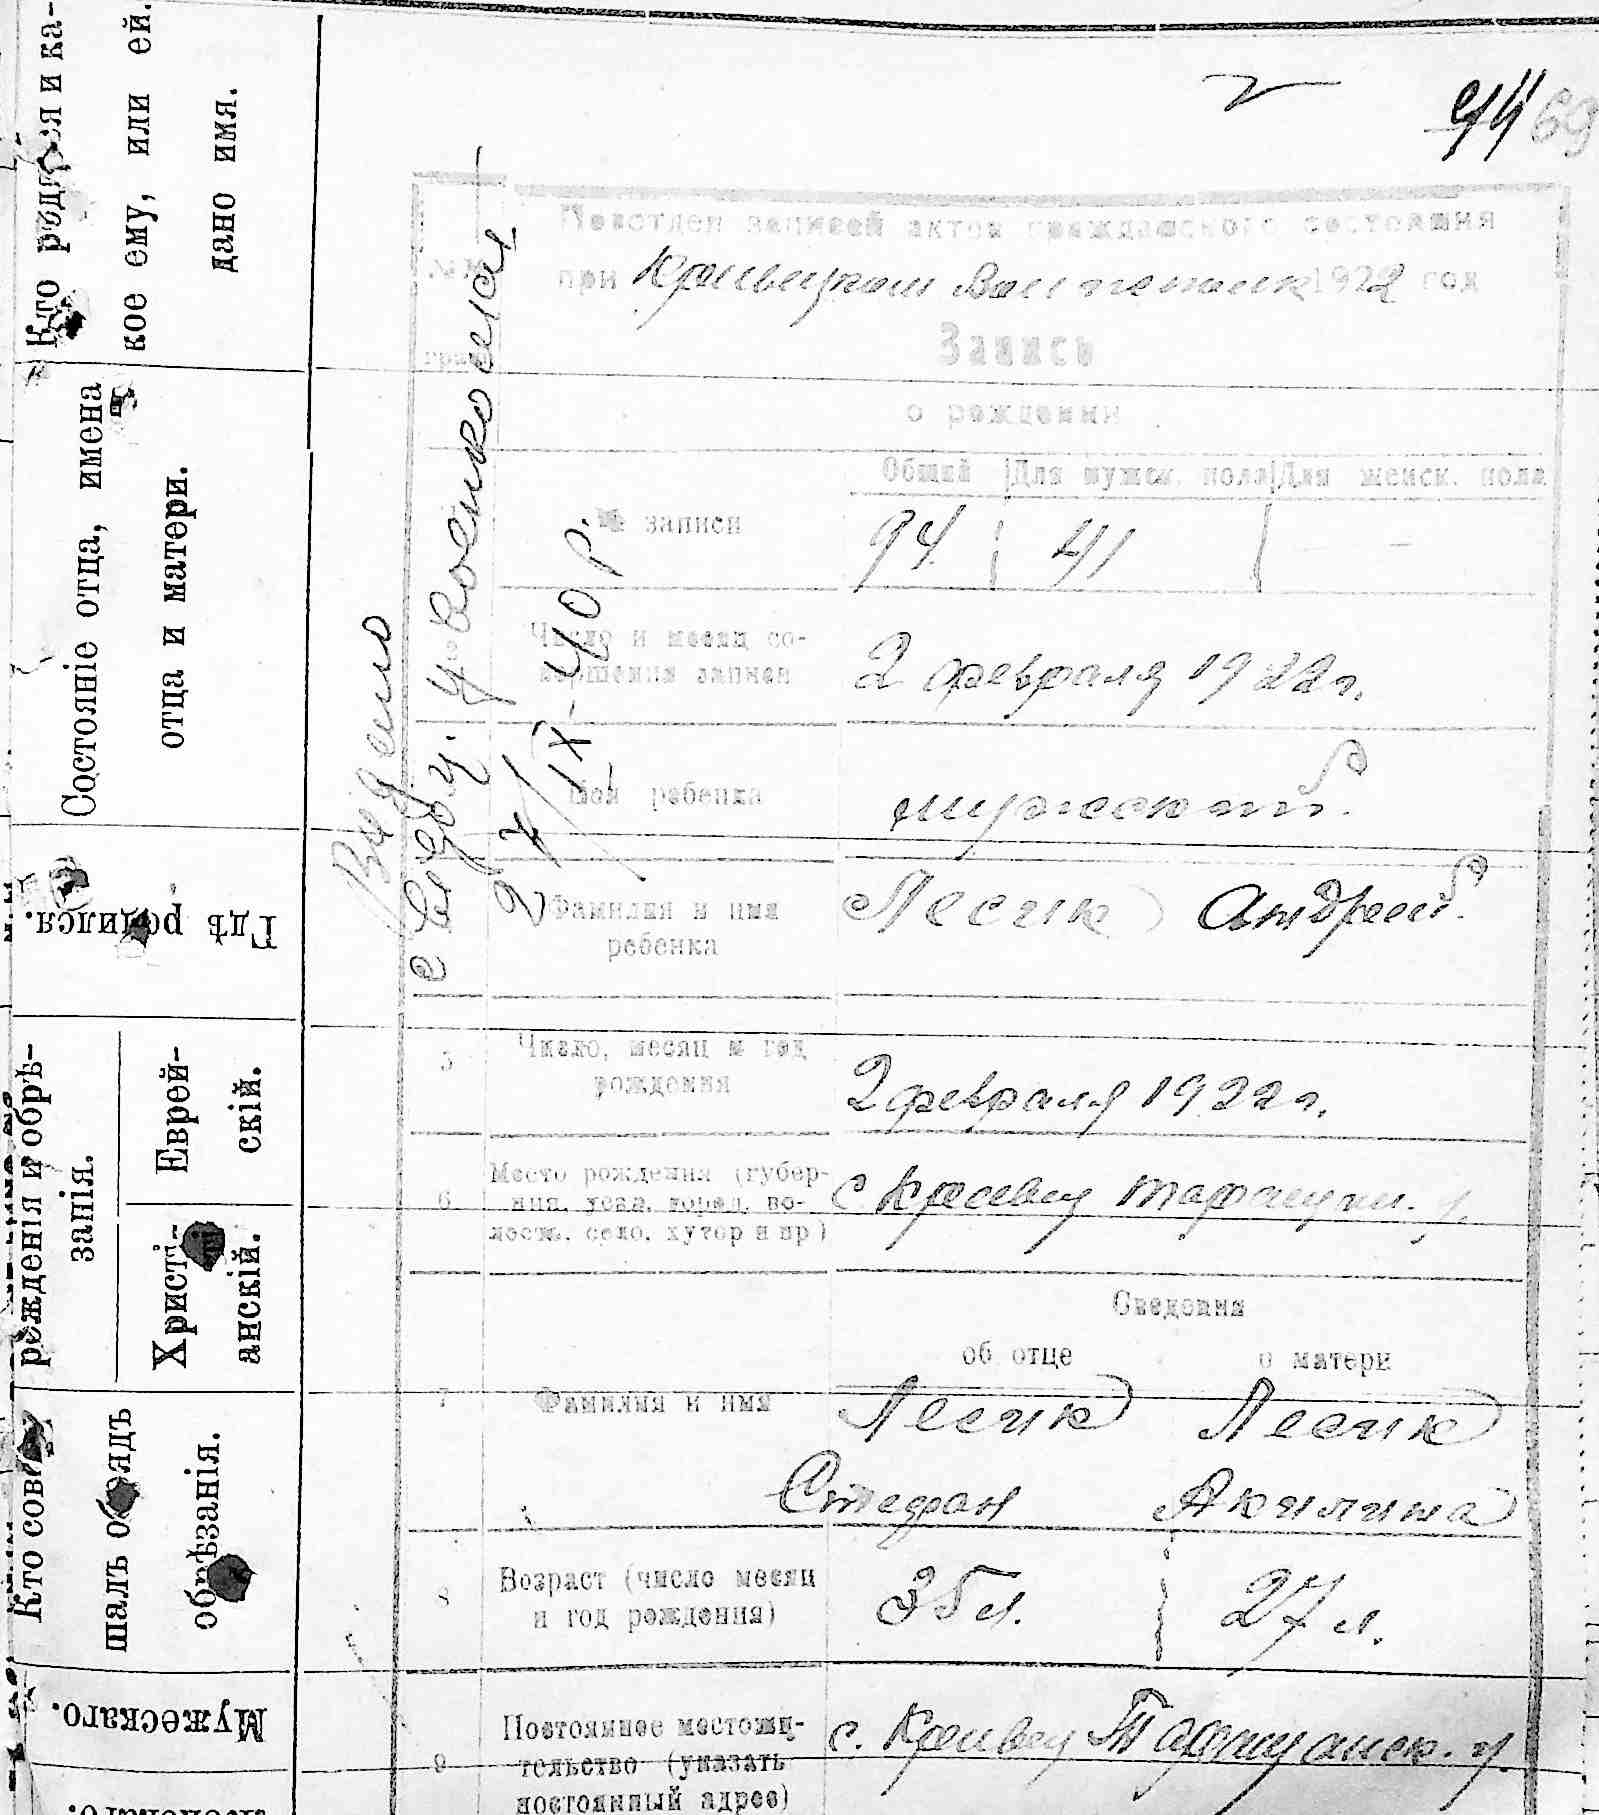 Кто родился и ка-
кое ему, или ей.
дано имя.
Состояніе отца, имена
отца и матери.
Гдѣ родился.
рожденія и обрѣ-
занія.
Еврей-
скій.
Христі-
анскій.
Кто совер
шалъ обрядъ
обрѣзанія.
Мужескаго.
94 69
Подотдел записей актов гражданского состояния
при 1922 год
Запись
о рождении
Общий Для мужск. пола Для женск. пола
№ записи 94 41 —
Число и месяц со-
вершения записи 2 февраля 1922 г.
Пол ребенка мужеский.
Фамилия и имя
ребенка Лесик Андрей.
5 Число, месяц и год
рождения 2 февраля 1922 г.
6 Место рождения (губер-
ния, уезд, город, во-
лость, село, хутор и пр) с Кривец Таращан. у.
Сведения
об отце о матери
7 Фамилия и имя Лесик Лесик
Стефан Акилина
8 Возраст (число месяц
и год рождения) 35 л. 27 л.
9 Постоянное местожи-
тельство (указать
постоянный адрес) с. Кривец Таращанск. у.
Видано
свідоц.
27/IX-40 р.